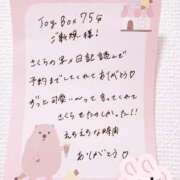 Joy Box 75分
ご新規様！
さくらの写メ日記読んで
予約までしてくれてありがとう♡
ずっと可愛い〜って言ってくれて
さくらもたのしかった！！
えちえちな時間
ありがとう♡